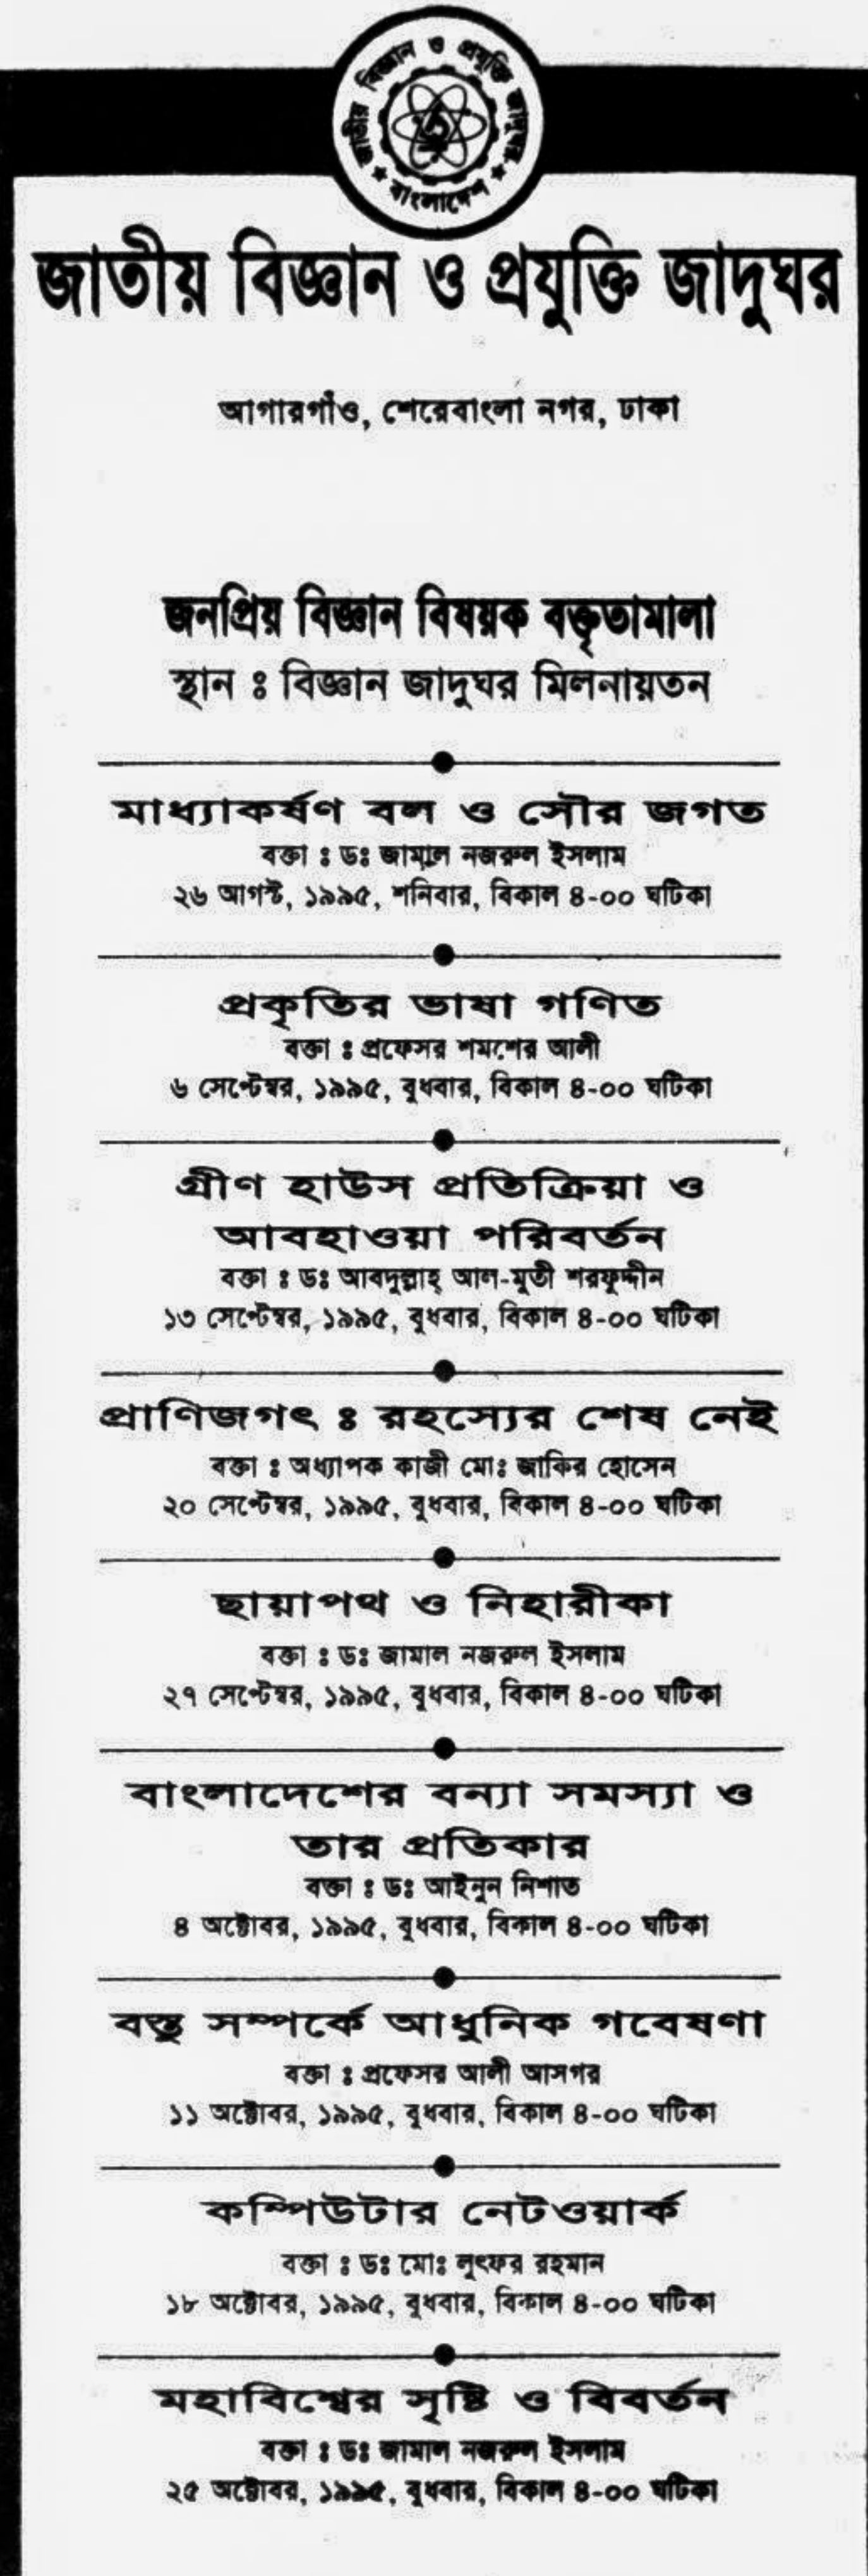 জাতীয় বিজ্ঞান ও প্রযুক্তি জাদুঘর
★ বাংলাদেশ ★
জাতীয় বিজ্ঞান ও প্রযুক্তি জাদুঘর
আগারগাঁও, শেরেবাংলা নগর, ঢাকা
জনপ্রিয় বিজ্ঞান বিষয়ক বক্তৃতামালা
স্থান ঃ বিজ্ঞান জাদুঘর মিলনায়তন
মাধ্যাকর্ষণ বল ও সৌর জগত
বক্তা ঃ ডঃ জামাল নজরুল ইসলাম
২৬ আগস্ট, ১৯৯৫, শনিবার, বিকাল ৪-০০ ঘটিকা
প্রকৃতির ভাষা গণিত
বক্তা ঃ প্রফেসর শমশের আলী
৬ সেপ্টেম্বর, ১৯৯৫, বুধবার, বিকাল ৪-০০ ঘটিকা
গ্রীণ হাউস প্রতিক্রিয়া ও
আবহাওয়া পরিবর্তন
বক্তা ঃ ডঃ আবদুল্লাহ্ আল-মুতী শরফুদ্দীন
১৩ সেপ্টেম্বর, ১৯৯৫, বুধবার, বিকাল ৪-০০ ঘটিকা
প্রাণিজগৎ ঃ রহস্যের শেষ নেই
বক্তা ঃ অধ্যাপক কাজী মোঃ জাকির হোসেন
২০ সেপ্টেম্বর, ১৯৯৫, বুধবার, বিকাল ৪-০০ ঘটিকা
ছায়াপথ ও নিহারীকা
বক্তা ঃ ডঃ জামাল নজরুল ইসলাম
২৭ সেপ্টেম্বর, ১৯৯৫, বুধবার, বিকাল ৪-০০ ঘটিকা
বাংলাদেশের বন্যা সমস্যা ও
তার প্রতিকার
বক্তা ঃ ডঃ আইনুন নিশাত
৪ অক্টোবর, ১৯৯৫, বুধবার, বিকাল ৪-০০ ঘটিকা
বস্তু সম্পর্কে আধুনিক গবেষণা
বক্তা ঃ প্রফেসর আলী আসগর
১১ অক্টোবর, ১৯৯৫, বুধবার, বিকাল ৪-০০ ঘটিকা
কম্পিউটার নেটওয়ার্ক
বক্তা ঃ ডঃ মোঃ লুৎফর রহমান
১৮ অক্টোবর, ১৯৯৫, বুধবার, বিকাল ৪-০০ ঘটিকা
মহাবিশ্বের সৃষ্টি ও বিবর্তন
বক্তা ঃ ডঃ জামাল নজরুল ইসলাম
২৫ অক্টোবর, ১৯৯৫, বুধবার, বিকাল ৪-০০ ঘটিকা